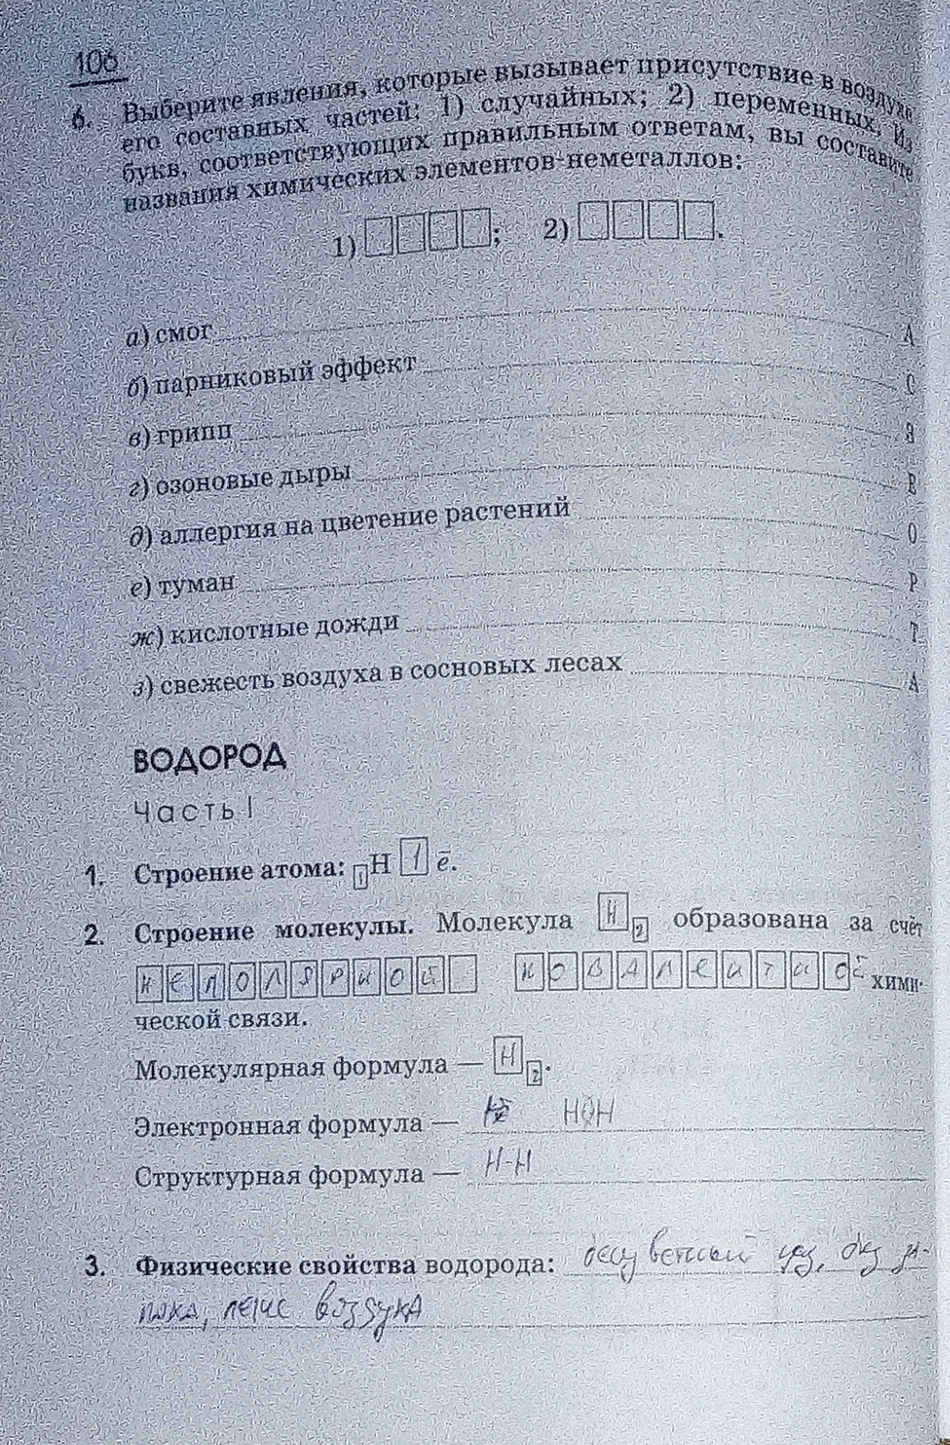 106
6. Выберите явления, которые вызывает присутствие в воздухе
его составных частей: 1) случайных; 2) переменных. Из
букв, соответствующих правильным ответам, вы составите
названия химических элементов-неметаллов:
1) ; 2) .
а) смог А
б) парниковый эффект С
в) грипп
г) озоновые дыры Е
д) аллергия на цветение растений О
е) туман Р
ж) кислотные дожди Т
з) свежесть воздуха в сосновых лесах А
ВОДОРОД
Часть I
1. Строение атома: 1H 1 ē.
2. Строение молекулы. Молекула H2 образована за счёт
НЕПОЛЯРНОЙ КОВАЛЕНТНОЙ хими-
ческой связи.
Молекулярная формула — H2.
Электронная формула — H H
Структурная формула — H-H
3. Физические свойства водорода: бесцветный газ, без за-
паха, легче воздуха